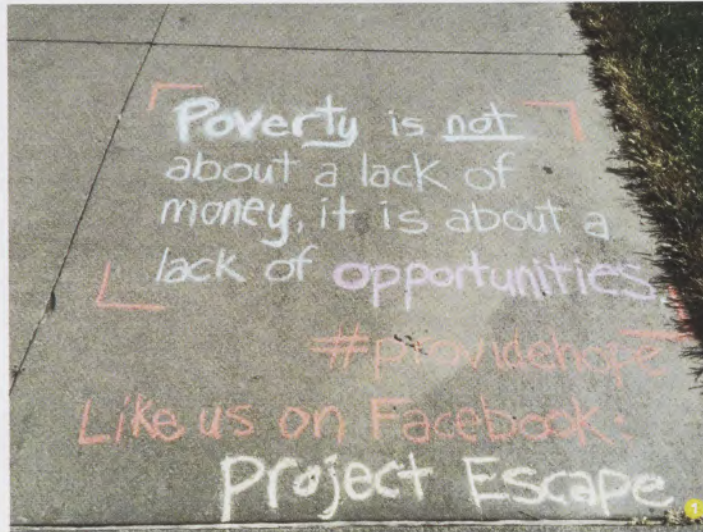 Poverty is not
about a lack of
money, it is about a
lack of opportunities.
#providehope
Like us on Facebook:
Project Escape
1